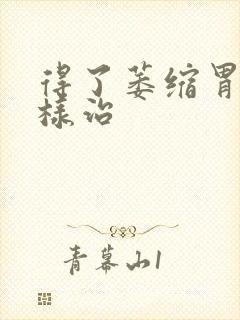 得了萎缩胃
样治
青幕山1